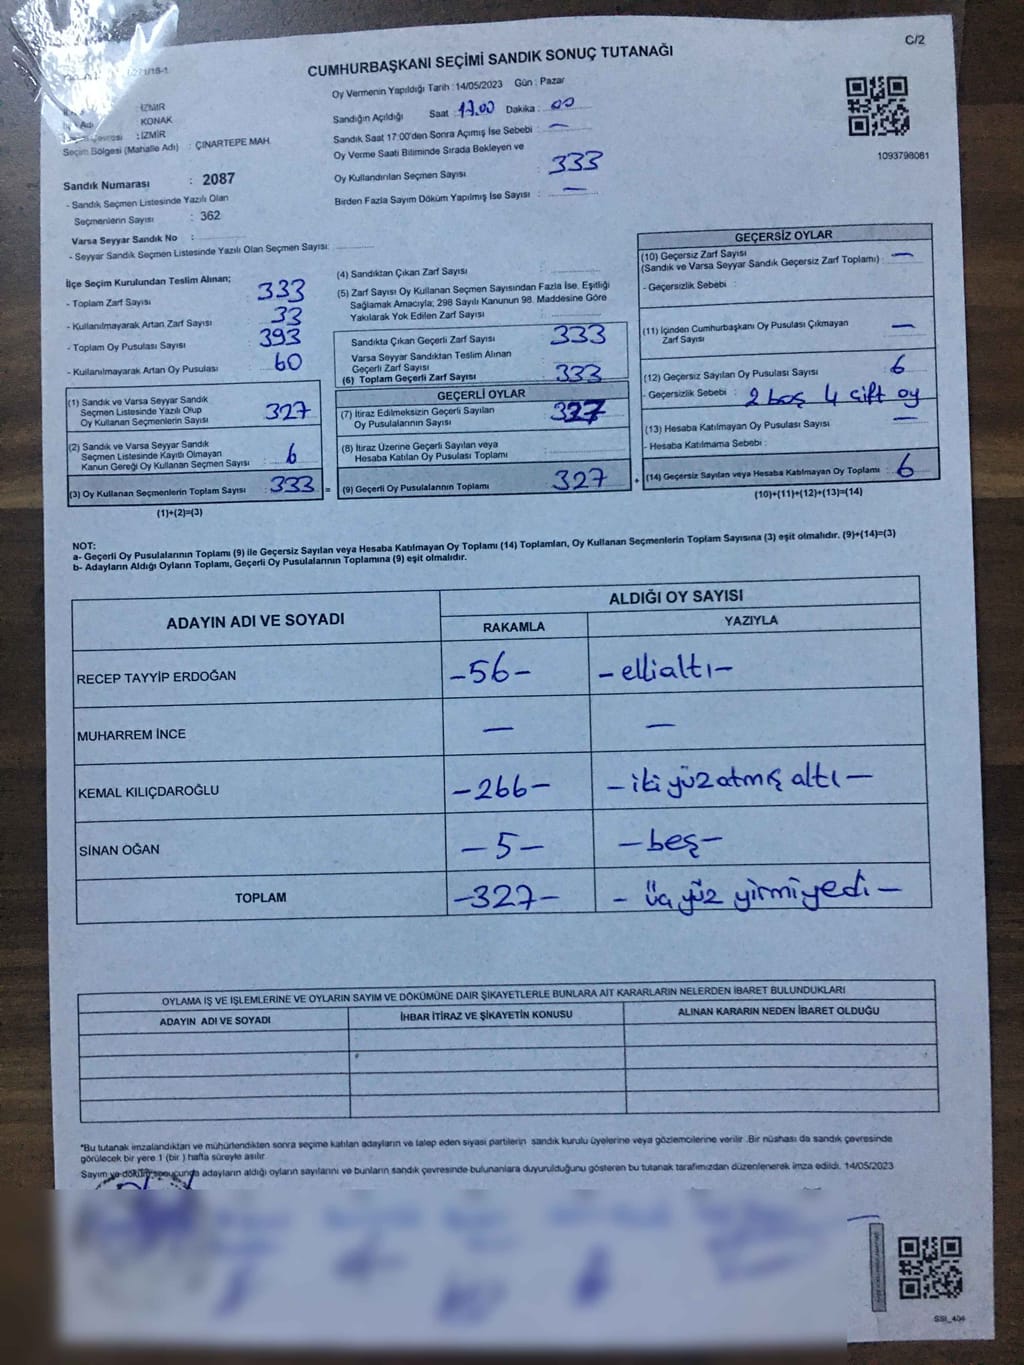 C/2
CUMHURBAŞKANI SEÇİMİ SANDIK SONUÇ TUTANAĞI
: İZMİR
Adı : KONAK
: İZMİR
Seçim Bölgesi (Mahalle Adı) : ÇINARTEPE MAH.
Oy Vermenin Yapıldığı Tarih : 14/05/2023 Gün : Pazar
Sandığın Açıldığı Saat : 17.00 Dakika : 00
Sandık Saat 17:00'den Sonra Açımış İse Sebebi : —
Oy Verme Saati Bitiminde Sırada Bekleyen ve
Oy Kullandırılan Seçmen Sayısı : 333
Birden Fazla Sayım Döküm Yapılmış İse Sayısı : —
1093798081
Sandık Numarası : 2087
- Sandık Seçmen Listesinde Yazılı Olan
Seçmenlerin Sayısı : 362
Varsa Seyyar Sandık No :
- Seyyar Sandık Seçmen Listesinde Yazılı Olan Seçmen Sayısı:
İlçe Seçim Kurulundan Teslim Alınan;
- Toplam Zarf Sayısı 333
- Kullanılmayarak Artan Zarf Sayısı 33
- Toplam Oy Pusulası Sayısı 393
- Kullanılmayarak Artan Oy Pusulası 60
(1) Sandık ve Varsa Seyyar Sandık
Seçmen Listesinde Yazılı Olup
Oy Kullanan Seçmenlerin Sayısı : 327
(2) Sandık ve Varsa Seyyar Sandık
Seçmen Listesinde Kayıtlı Olmayan
Kanun Gereği Oy Kullanan Seçmen Sayısı : 6
(3) Oy Kullanan Seçmenlerin Toplam Sayısı : 333 =
(1)+(2)=(3)
(4) Sandıktan Çıkan Zarf Sayısı :
(5) Zarf Sayısı Oy Kullanan Seçmen Sayısından Fazla İse, Eşitliği
Sağlamak Amacıyla; 298 Sayılı Kanunun 98. Maddesine Göre
Yakılarak Yok Edilen Zarf Sayısı :
Sandıkta Çıkan Geçerli Zarf Sayısı : 333
Varsa Seyyar Sandıktan Teslim Alınan
Geçerli Zarf Sayısı :
(6) Toplam Geçerli Zarf Sayısı : 333
GEÇERLİ OYLAR
(7) İtiraz Edilmeksizin Geçerli Sayılan
Oy Pusulalarının Sayısı : 327
(8) İtiraz Üzerine Geçerli Sayılan veya
Hesaba Katılan Oy Pusulası Toplamı :
(9) Geçerli Oy Pusulalarının Toplamı : 327 +
GEÇERSİZ OYLAR
(10) Geçersiz Zarf Sayısı
(Sandık ve Varsa Seyyar Sandık Geçersiz Zarf Toplamı) : —
- Geçersizlik Sebebi :
(11) İçinden Cumhurbaşkanı Oy Pusulası Çıkmayan
Zarf Sayısı : —
(12) Geçersiz Sayılan Oy Pusulası Sayısı : 6
- Geçersizlik Sebebi : 2 boş 4 çift oy
(13) Hesaba Katılmayan Oy Pusulası Sayısı : —
- Hesaba Katılmama Sebebi :
(14) Geçersiz Sayılan veya Hesaba Katılmayan Oy Toplamı : 6
(10)+(11)+(12)+(13)=(14)
NOT:
a- Geçerli Oy Pusulalarının Toplamı (9) ile Geçersiz Sayılan veya Hesaba Katılmayan Oy Toplamı (14) Toplamları, Oy Kullanan Seçmenlerin Toplam Sayısına (3) eşit olmalıdır. (9)+(14)=(3)
b- Adayların Aldığı Oyların Toplamı, Geçerli Oy Pusulalarının Toplamına (9) eşit olmalıdır.
ADAYIN ADI VE SOYADI
ALDIĞI OY SAYISI
RAKAMLA YAZIYLA
RECEP TAYYİP ERDOĞAN -56- -ellialtı-
MUHARREM İNCE — —
KEMAL KILIÇDAROĞLU -266- -iki yüz atmış altı-
SİNAN OĞAN -5- -beş-
TOPLAM -327- - üç yüz yirmiyedi -
OYLAMA İŞ VE İŞLEMLERİNE VE OYLARIN SAYIM VE DÖKÜMÜNE DAİR ŞİKAYETLERLE BUNLARA AİT KARARLARIN NELERDEN İBARET BULUNDUKLARI
ADAYIN ADI VE SOYADI İHBAR İTİRAZ VE ŞİKAYETİN KONUSU ALINAN KARARIN NEDEN İBARET OLDUĞU
*Bu tutanak imzalandıktan ve mühürlendikten sonra seçime katılan adayların ve talep eden siyasi partilerin sandık kurulu üyelerine veya gözlemcilerine verilir .Bir nüshası da sandık çevresinde
görülecek bir yere 1 (bir ) hafta süreyle asılır.
Sayım ve döküm sonucunda adayların aldığı oyların sayılarını ve bunların sandık çevresinde bulunanlara duyurulduğunu gösteren bu tutanak tarafımızdan düzenlenerek imza edildi. 14/05/2023